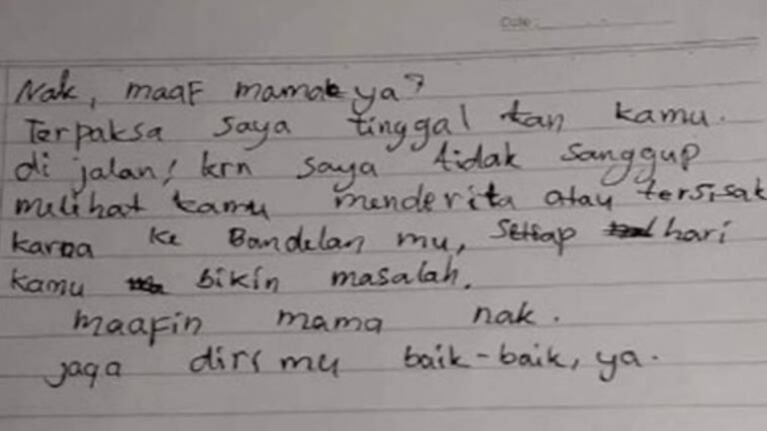 Date:
Nak, maaf mamak ya?
Terpaksa saya tinggal kan kamu.
di jalan! krn saya tidak sanggup
mulihat kamu menderita atau tersisak
karna ke Bandelan mu, Setiap hari
kamu bikin masalah.
maafin mama nak.
jaga dirimu baik-baik, ya.